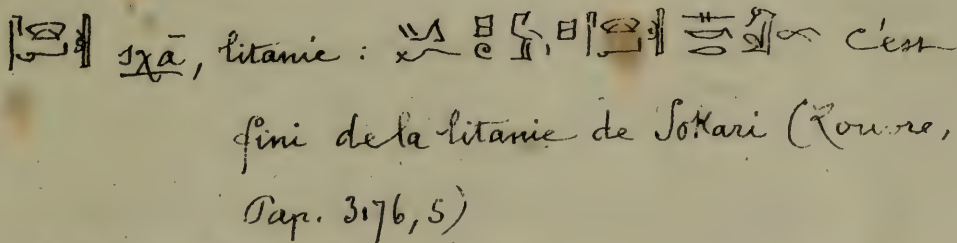 sχā, litanie : c'est
fini de la litanie de Sokari (Louvre,
Pap. 3176, S)